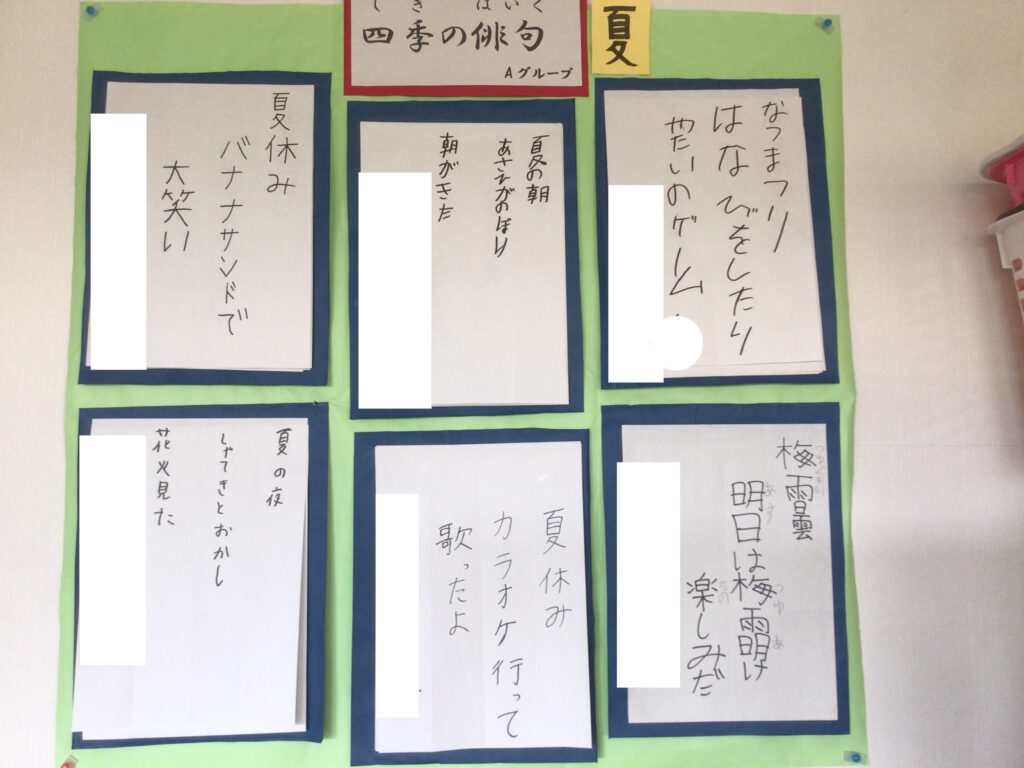 しき はいく
四季の俳句
Aグループ
夏
なつまつり
はなびをしたり
やたいのゲーム
夏の朝
あさひがのぼり
朝がきた
夏休み
バナナサンドで
大笑い
つゆぐもり
梅雨曇
あす つゆ あ
明日は梅雨明け
たの
楽しみだ
夏休み
カラオケ行って
歌ったよ
夏の夜
しゃてきとおかし
花火見た